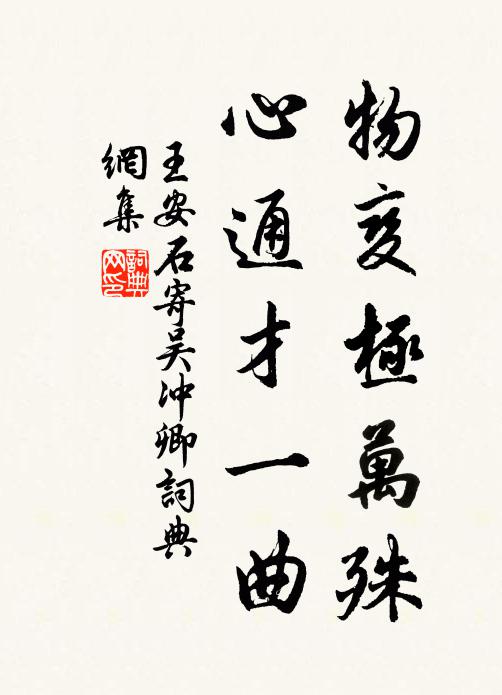 物变極萬殊
心通才一曲
王安石寄吴冲卿詞典
網集
詞典
网印